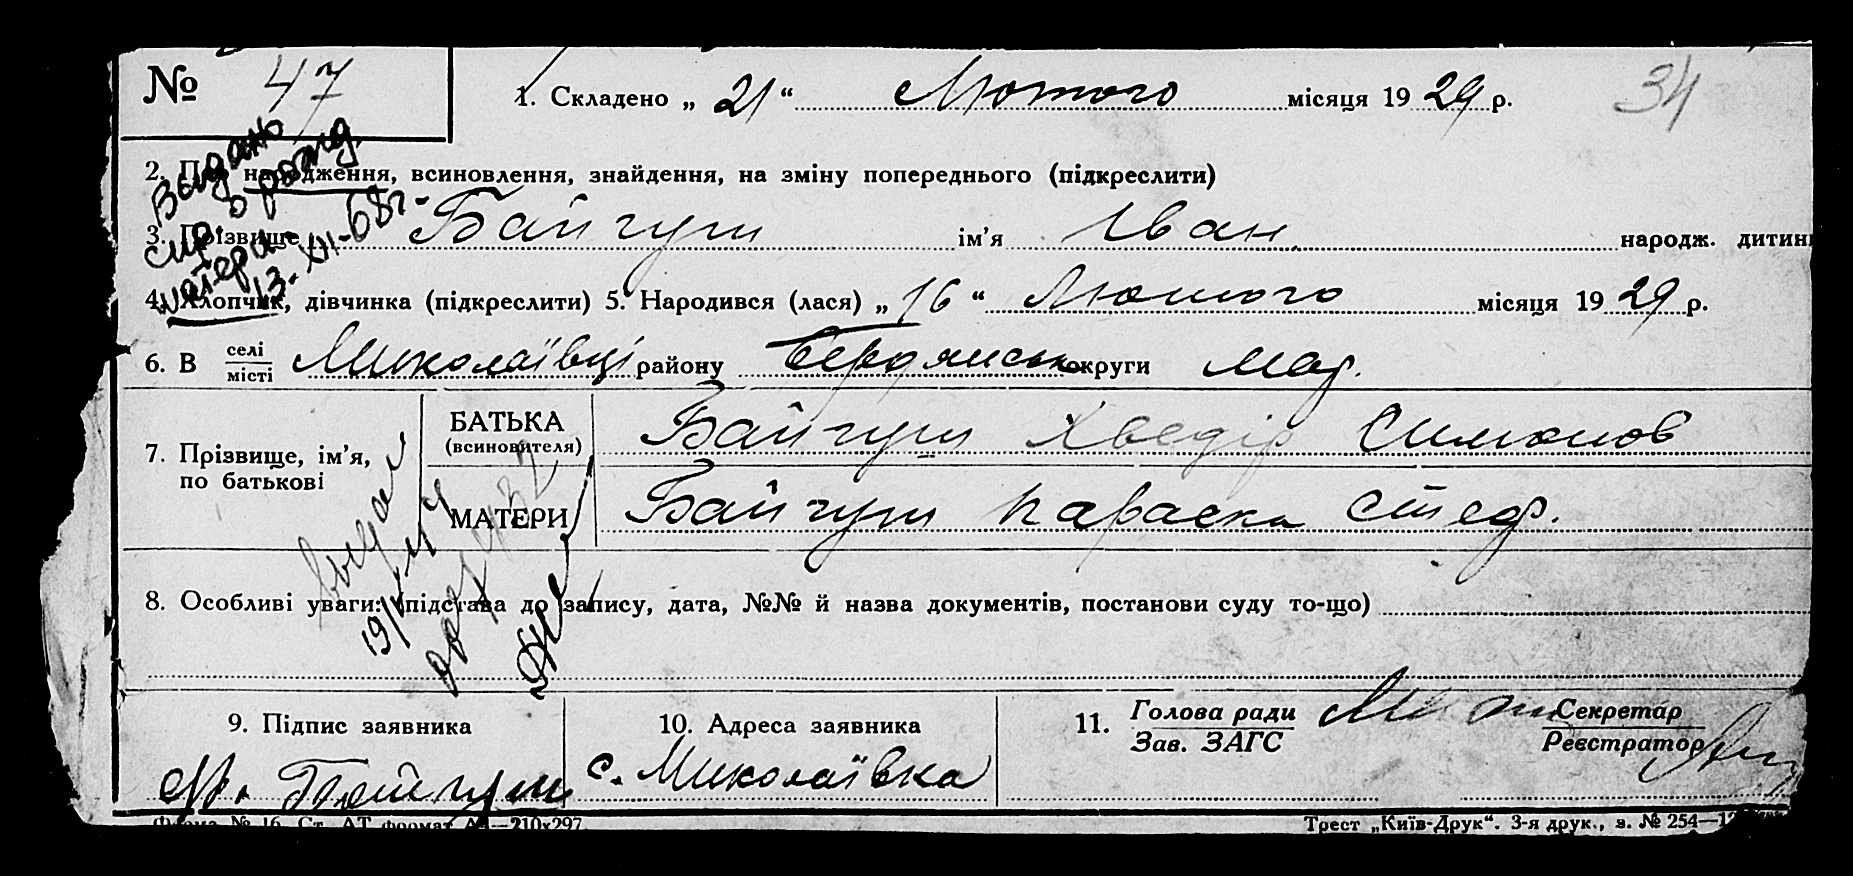 № 47
1. Складено „ 21 “ Лютого місяця 19 29 р. 34
Видань
2. народження, всиновлення, знайдення, на зміну попереднього (підкреслити)
3. Прізвище Байгуш ім’я Іван народж. дитини
матери
13-XII-68г.
4. Хлопчик, дівчинка (підкреслити) 5. Народився (лася) „ 16 “ Лютого місяця 19 29 р.
6. В селі Миколаївці району Бердянськ округи Мар.
місті
7. Прізвище, ім’я, по батькові
БАТЬКА (всиновителя) Байгуш Хведір Симонов
МАТЕРИ Байгуш Параска Стеф.
8. Особливі уваги: (підстава до запису, дата, №№ й назва документів, постанови суду то-що)
9. Підпис заявника
Байгуш
10. Адреса заявника
с. Миколаївка
11. Голова ради
Зав. ЗАГС
Секретар
Реєстратор
Форма № 16. Ст. АТ формат А4—210х297.
Трест „Київ-Друк“. 3-я друк., з. № 254—